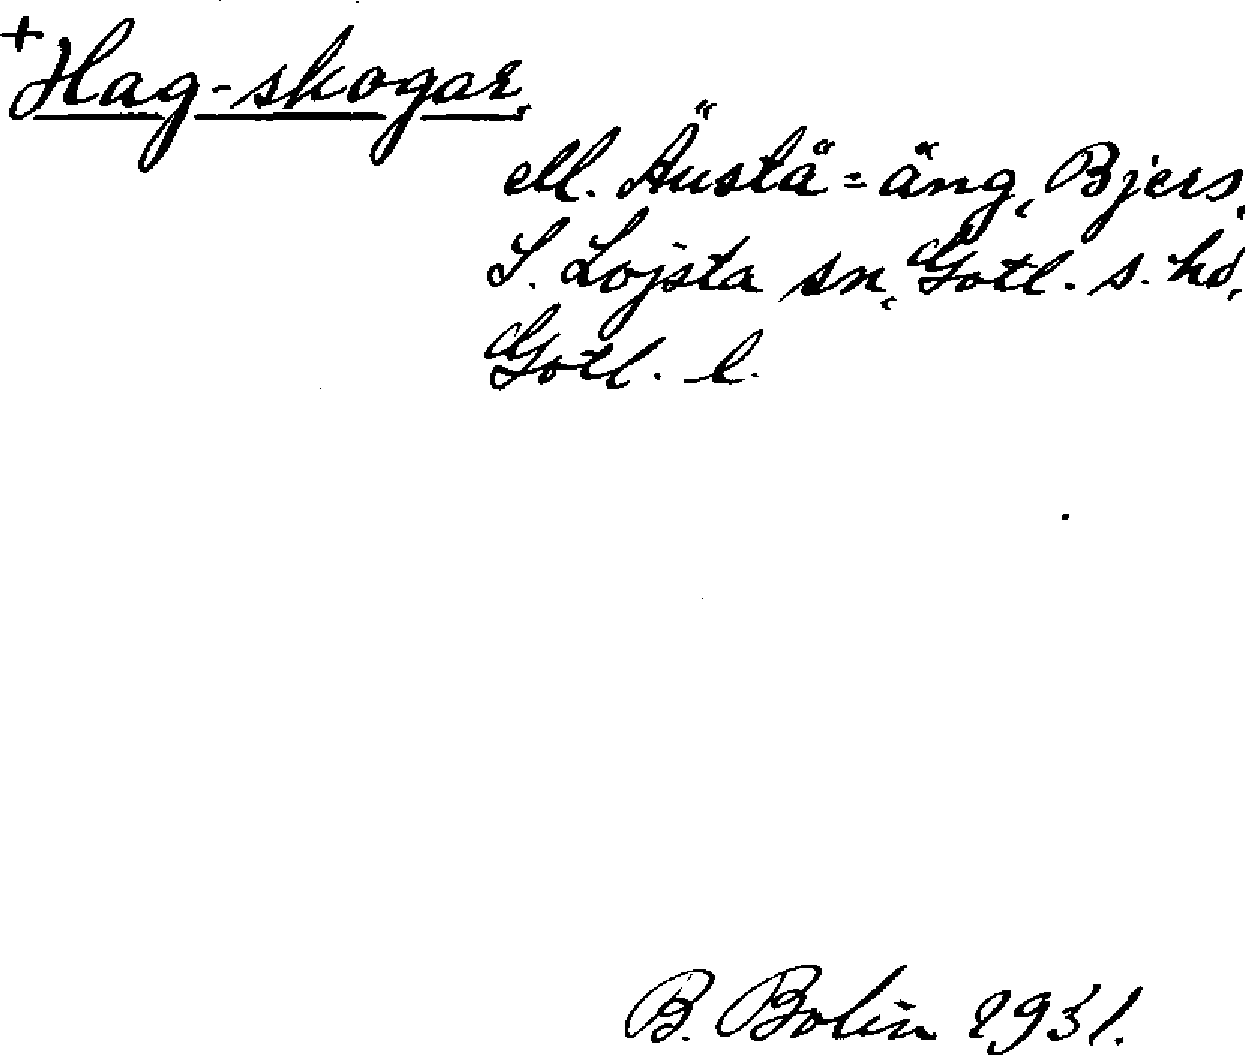 +Hag-skogar,
ell. Äustä-äng, Bjers,
S. Lojsta sn, Gotl. s. hd,
Gotl. l.
B. Bolin 1931.